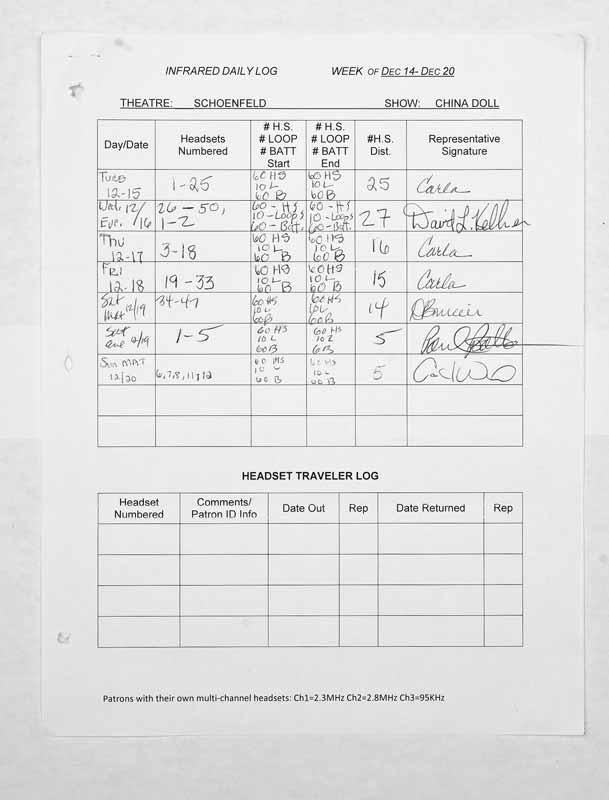 INFRARED DAILY LOG WEEK OF DEC 14- DEC 20
THEATRE: SCHOENFELD SHOW: CHINA DOLL
Day/Date Headsets Numbered # H.S. # LOOP # BATT Start # H.S. # LOOP # BATT End #H.S. Dist. Representative Signature
TUES 12-15 1-25 60 HS 10 L 60 B 60 HS 10 L 60 B 25 Carla
Wed. 12/ Eve. /16 26-50, 1-2 60-HS 10-Loops 60-Batt. 60-HS 10-Loops 60-Batt. 27 David L.
THU 12-17 3-18 60 HS 10 L 60 B 60 HS 10 L 60 B 16 Carla
FRI 12-18 19-33 60 HS 10 L 60 B 60 HS 10 L 60 B 15 Carla
Sat Mat 12/19 34-47 60 HS 10 L 60 B 60 HS 10 L 60 B 14
Sat eve 12/19 1-5 60 HS 10 L 60 B 60 HS 10 L 6 B 5
Sun MAT 12/20 6,7,8,11,12 60 HS 10 L 60 B 60 HS 10 L 60 B 5
HEADSET TRAVELER LOG
Headset Numbered Comments/ Patron ID Info Date Out Rep Date Returned Rep
Patrons with their own multi-channel headsets: Ch1=2.3MHz Ch2=2.8MHz Ch3=95KHz